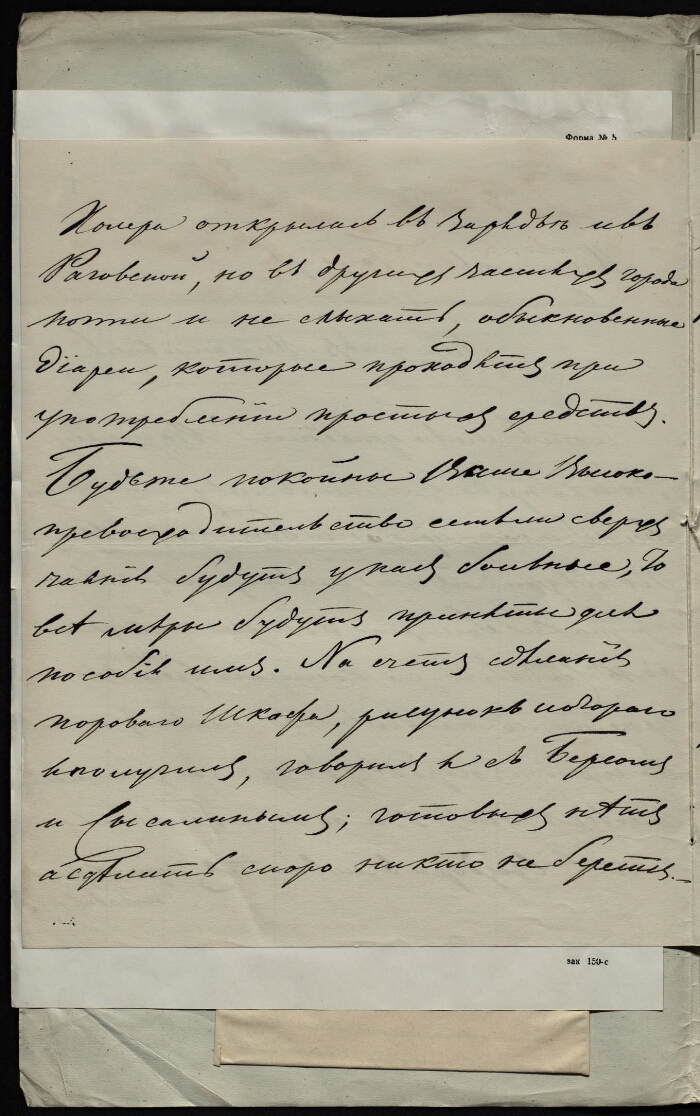 Форма № 5
Холера открылась въ Зарядьѣ и въ
Роговской, но въ другихъ частяхъ города
почти и не слыхать, обыкновенные
діареи, которые проходятъ при
употребленіи простыхъ средствъ.
Будьте покойны Ваше Высоко-
превосходительство если сверхъ
чаянія будутъ у насъ больные, то
всѣ мѣры будутъ приняты для
пособія имъ. На счетъ сдѣланія
пороваго Шкафа, рисунокъ котораго
я получилъ, говорилъ я съ
и готовыхъ нѣтъ
а сдѣлать скоро никто не берется.
зак 150-с